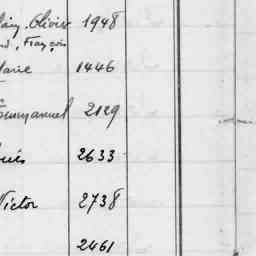 Olivier 1948
François
Marie 1446
Emmanuel 2129
Louis 2633
Victor 2738
2461